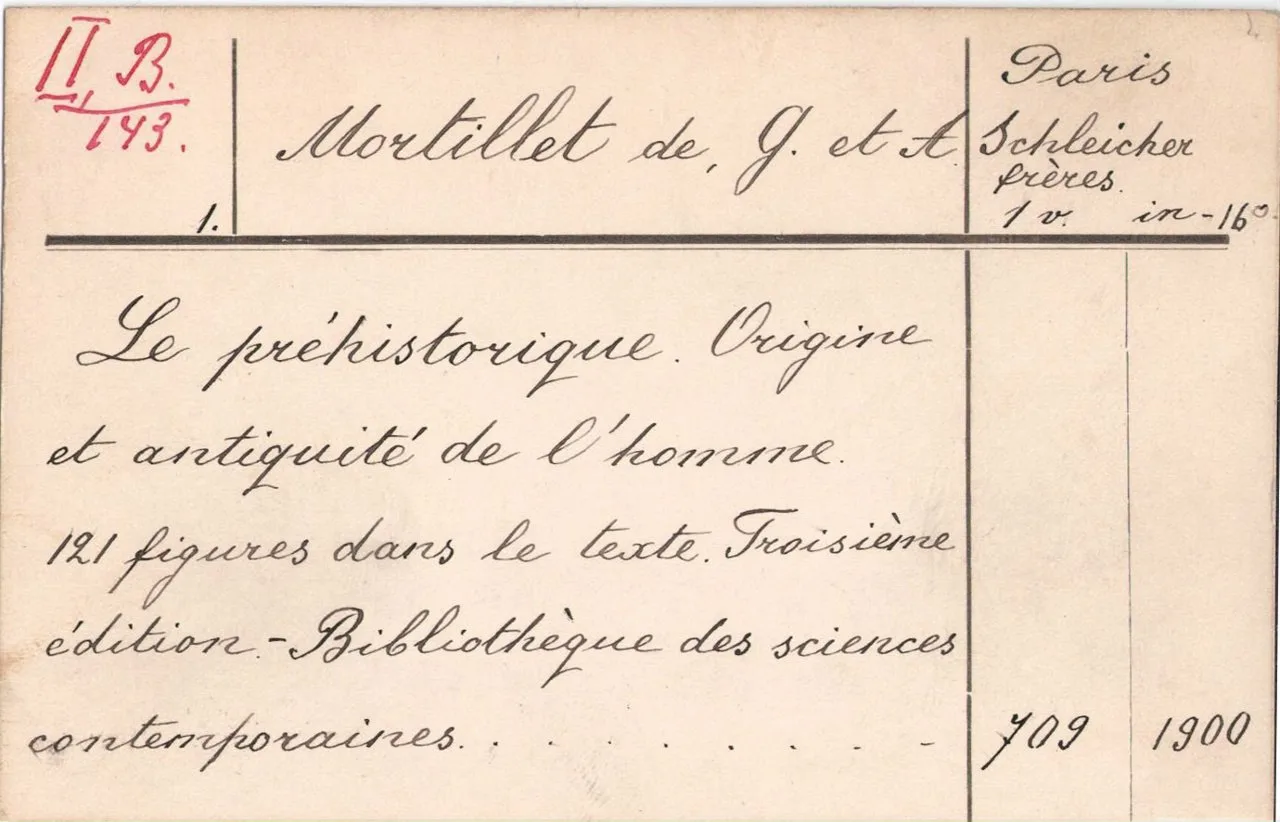 II, B.
143.
1.
Mortillet de, G. et A.
Paris
Schleicher
frères.
1 v. in-16º
Le préhistorique. Origine
et antiquité de l'homme.
121 figures dans le texte. Troisième
édition.- Bibliothèque des sciences
contemporaines. . . . . . . . . -
709 1900